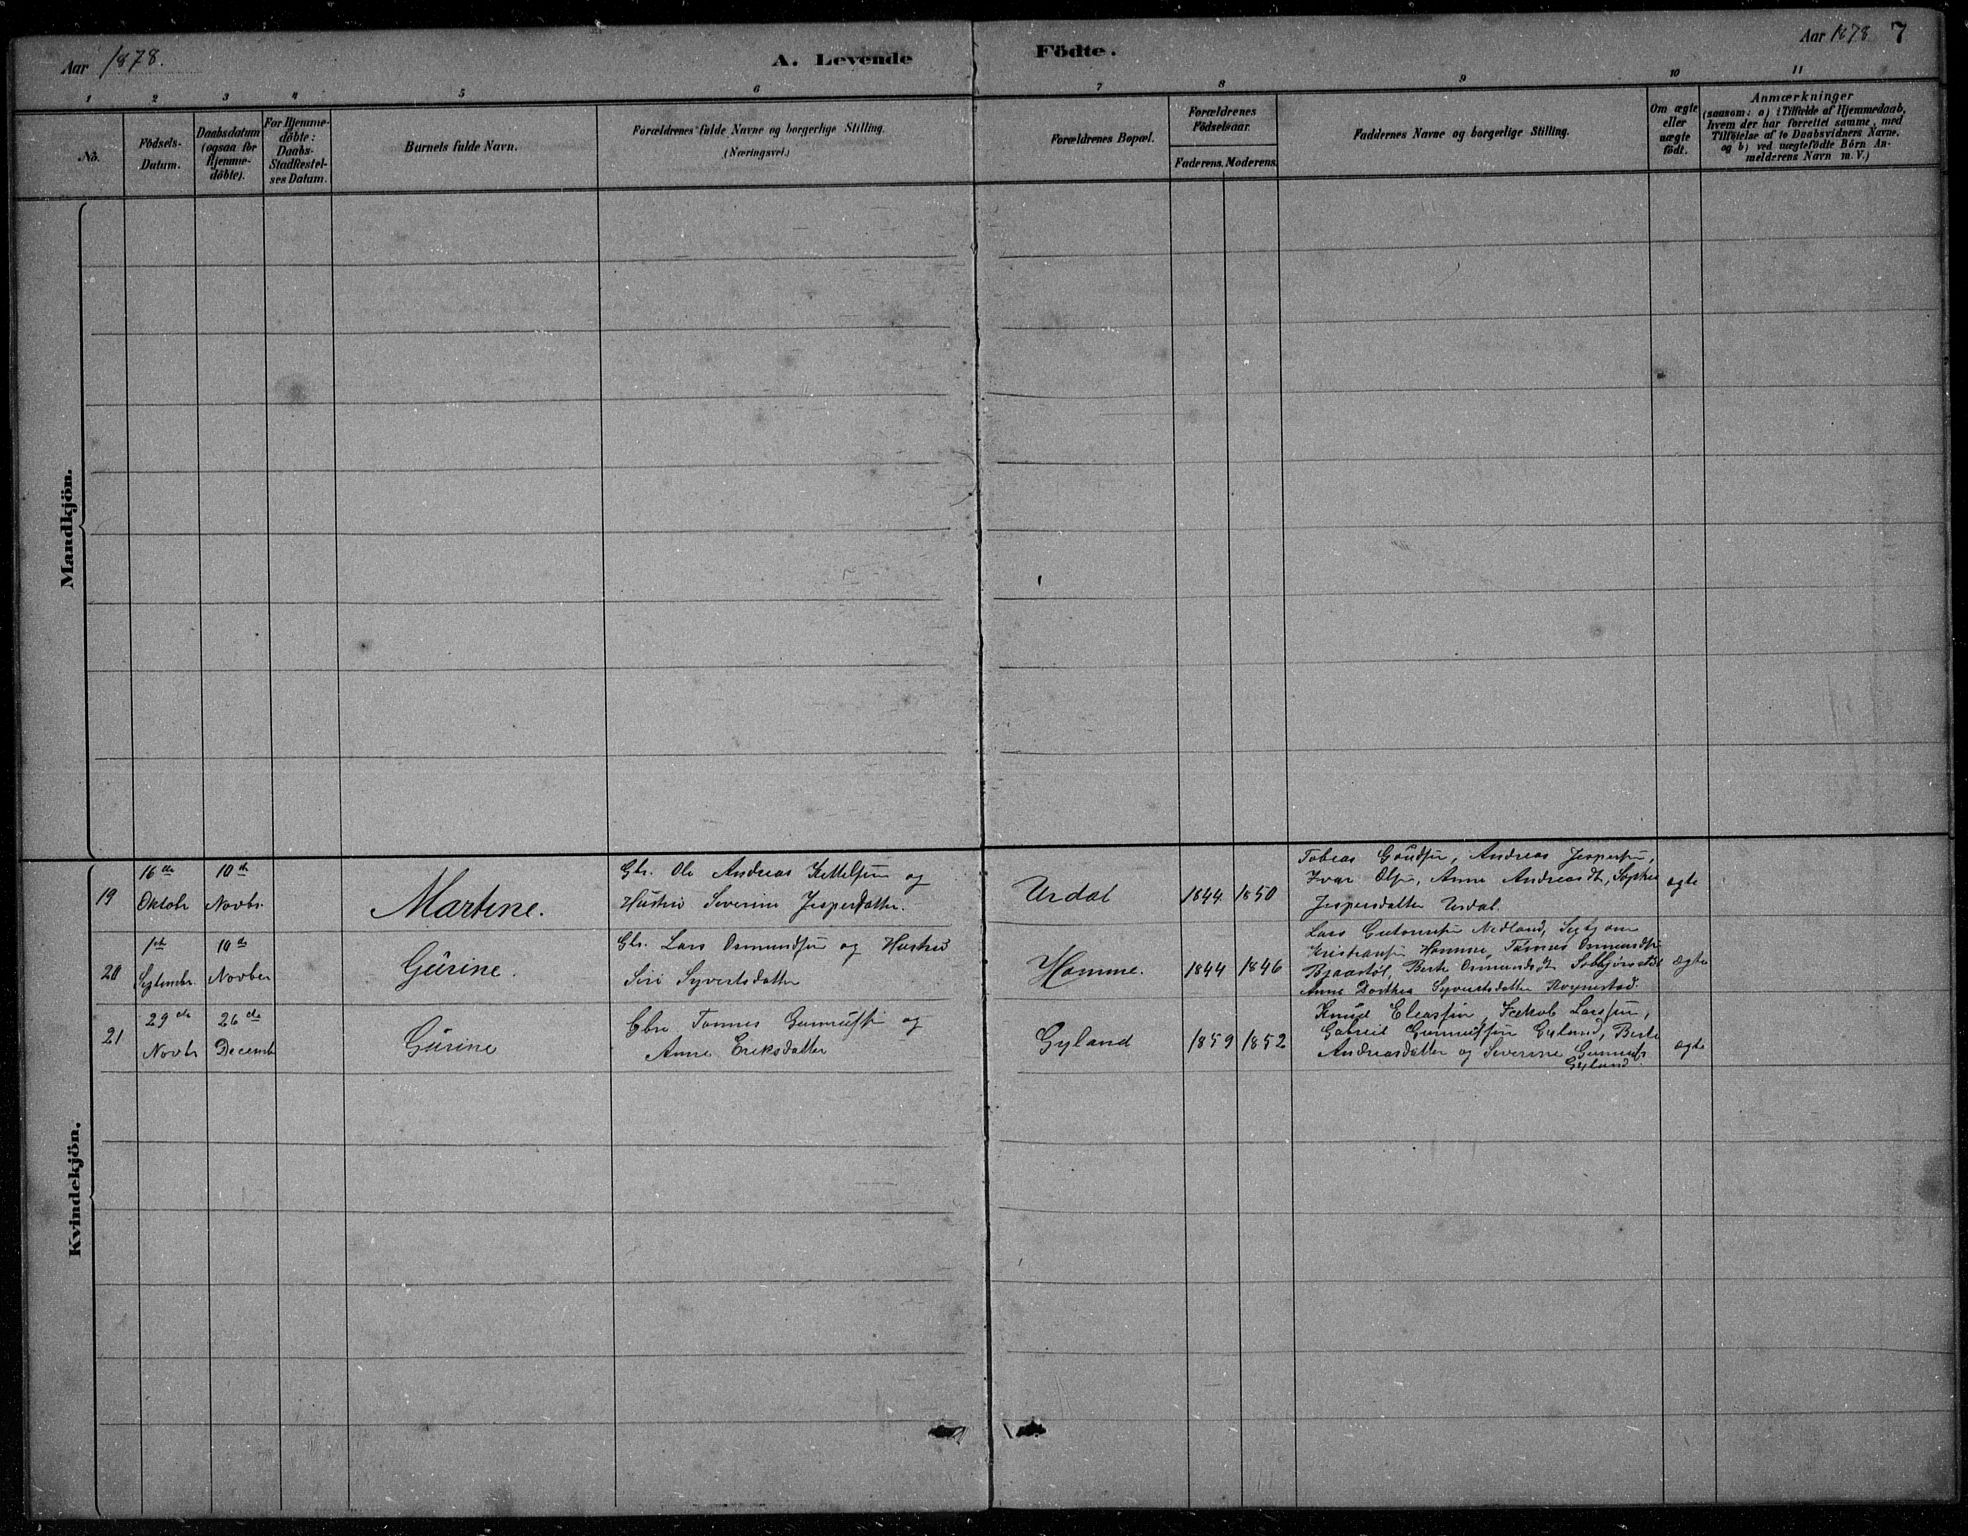 Aar 1878.
A. Levende
Födte.
Aar 1878 7
1 2 3 4 5 6 7 8 9 10 11
No.
Födsels-
Datum.
Daabsdatum
(ogsaa for
Hjemme-
döbte).
For Hjemme-
döbte:
Daabs-
Stadfæstel-
ses Datum.
Barnets fulde Navn.
Forældrenes fulde Navne og borgerlige Stilling.
(Næringsvei.)
Forældrenes Bopæl.
Forældrenes
Födselsaar.
Faderens. Moderens.
Faddernes Navne og borgerlige Stilling.
Om ægte
eller
uægte
födt.
Anmærkninger
(saasom: a) i Tilfælde af Hjemmedaab,
hvem der har forrettet samme, med
Tilföielse af to Daabsvidners Navne,
og b) ved uægtefödte Börn An-
melderens Navn m. V.)
Mandkjön.
Kvindekjön.
19
16de
Oktobr
10de
Novbr.
Martine.
Gbr. Ole Andreas Kittelsen og
Hustru Severine Jespersdatter.
Urdal
1844 1850
Tobias Andreas Jespersen,
Ivar Olsen, Anne Andreasdt,
Jespersdatter Urdal.
ægte
20
1ste
Septembr.
10de
Novber
Gurine.
Gbr. Lars Osmundsen og Hustru
Siri Syvertsdatter
Homme.
1844 1846
Lars Nedland,
Kristiansen Homme, Tønnes Osmundsen
Berte Osmundsdt
Anne Dorthea Syvertsdatter
ægte
21
29de
Novbr
26de
Decemb
Gurine
Gbr. Tønnes Gunnufsen og
Anne Eriksdatter
Gyland
1859 1852
Knud Eleassen, Jakob Larssen,
Gabriel Gunnufsen Gyland, Berte
Andreasdatter og Severine Gunnufs
Gyland.
ægte